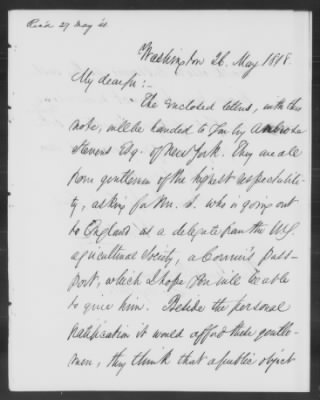 Rec'd 27 May '48
Washington 26. May 1848.
My dear sir:-
The enclosed letters, with this
note, will be handed to you by Ambrose
Stevens Esq. of New York. They are all
from gentlemen of the highest respectabili-
ty, asking for Mr. S. who is going out
to England as a delegate from the N.Y.
agricultural Society, a Courier's Pass-
port, which I hope you will be able
to give him. Beside the personal
gratification it would afford these gentle-
men, they think that a public object